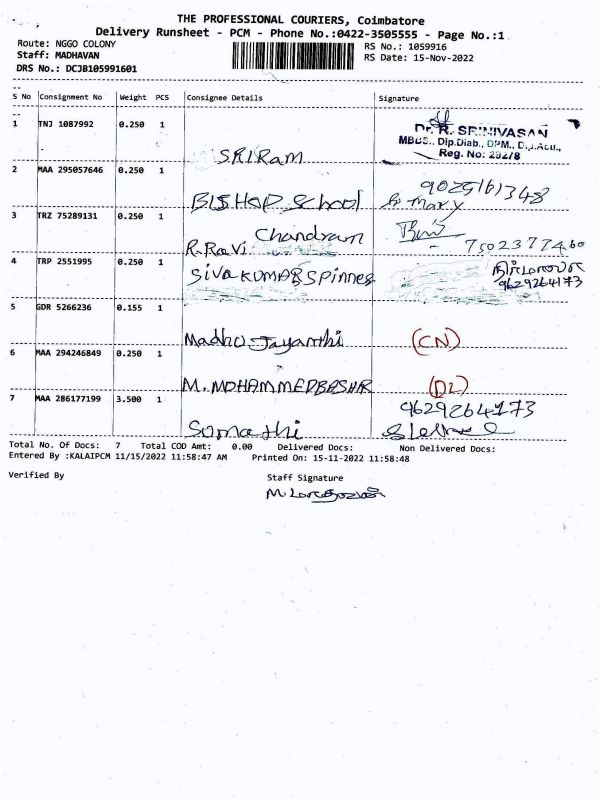 THE PROFESSIONAL COURIERS, Coimbatore
Delivery Runsheet - PCM - Phone No.:0422-3505555 - Page No.:1
Route: NGGO COLONY
RS No.: 1059916
Staff: MADHAVAN
RS Date: 15-Nov-2022
DRS No.: DCJB105991601
S No Consignment No Weight PCS Consignee Details Signature
1 TNJ 1087992 0.250 1
Dr. R. SRINIVASAN
MBBS., Dip.Diab., DPM., D.Acu.,
Reg. No: 29278
SRIRAM
2 MAA 295057646 0.250 1
9025161348
BISHOP School
3 TRZ 75289131 0.250 1
Chandram
R.Ravi
7502377460
4 TRP 2551995 0.250 1
SIVAKUMAR SPinners
9629264173
5 GDR 5266236 0.155 1
Madhu Jayanthi (CN)
6 MAA 294246849 0.250 1
M. MOHAMMED BASHIR (DL)
7 MAA 286177199 3.500 1
9629264173
Sumathi
Total No. Of Docs: 7 Total COD Amt: 0.00 Delivered Docs: Non Delivered Docs:
Entered By :KALAIPCM 11/15/2022 11:58:47 AM Printed On: 15-11-2022 11:58:48
Verified By
Staff Signature